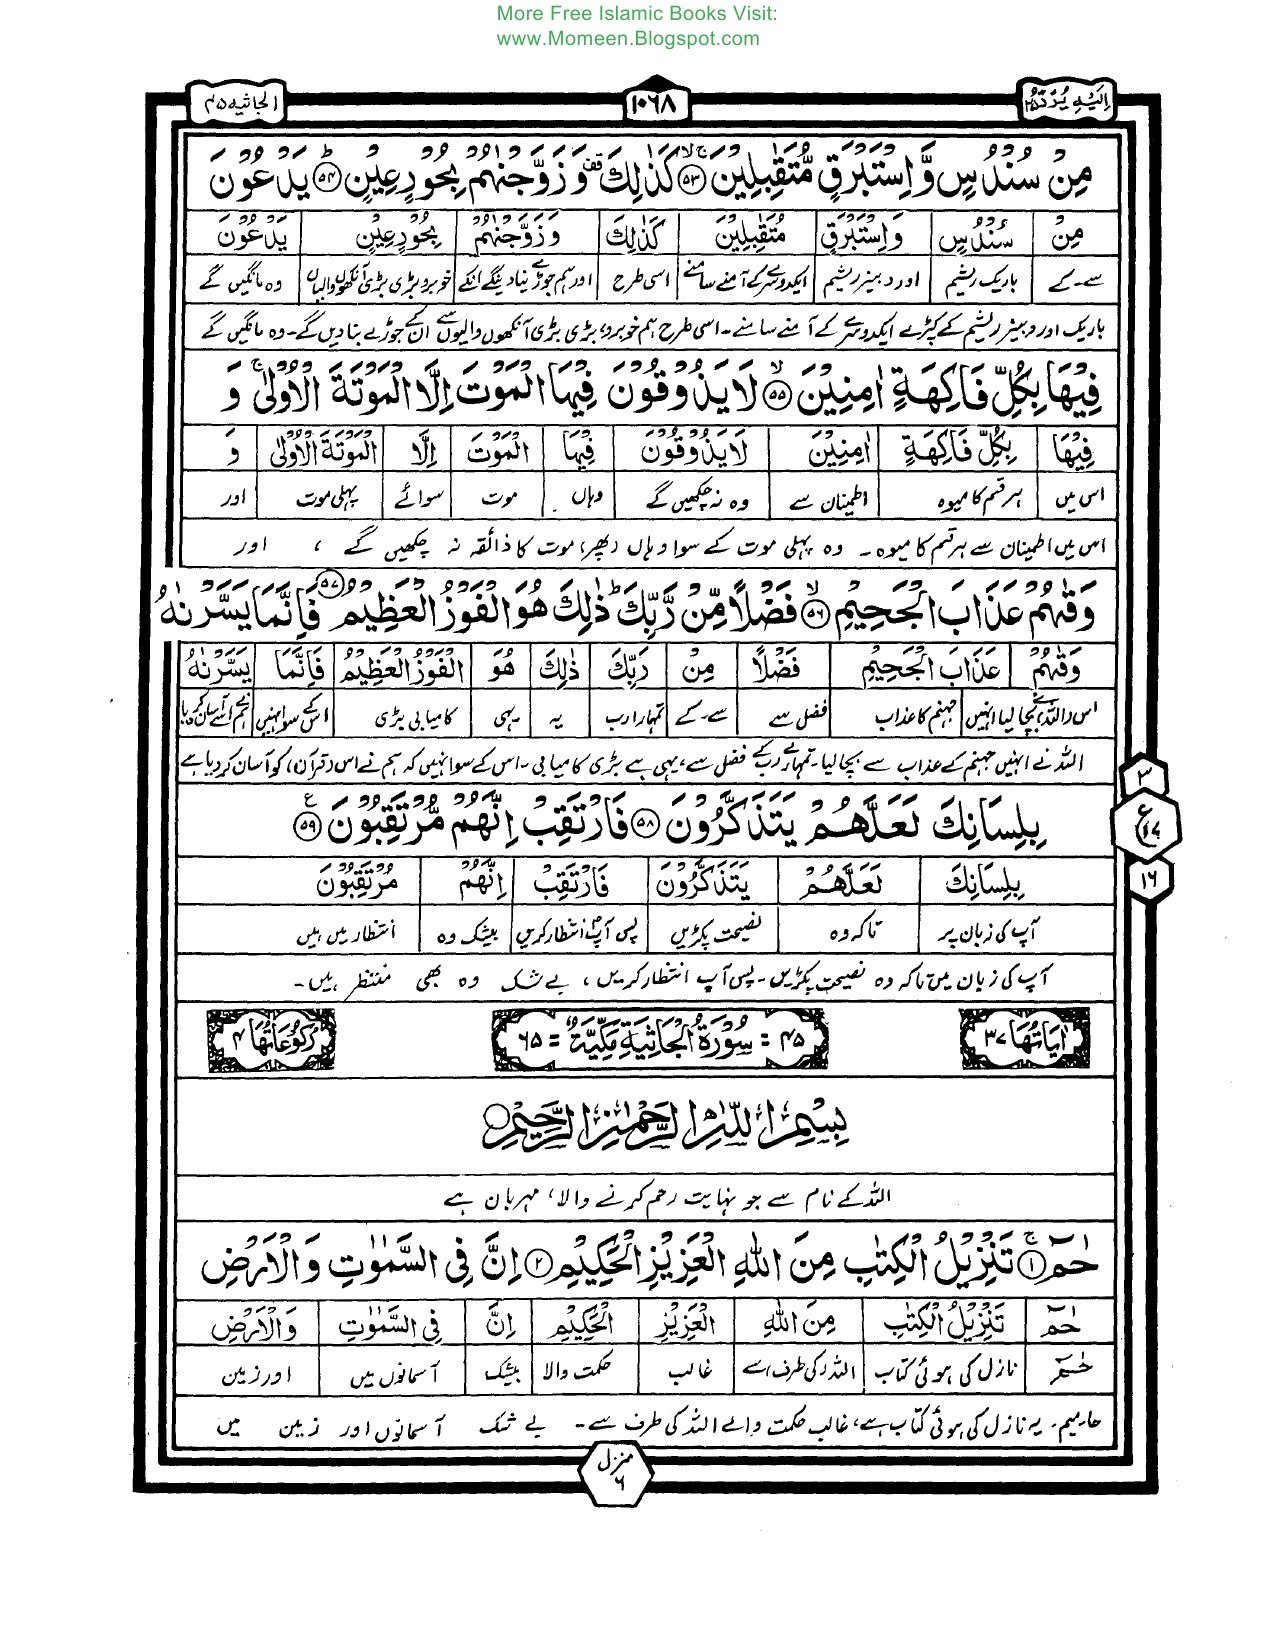 More Free Islamic Books Visit:
www.Momeen.Blogspot.com
اِلَيْهِ يُرَدُّ ۲۵
۱۰۶۸
الجاثیہ ۴۵
مِنْ سُنْدُسٍ وَّاِسْتَبْرَقٍ مُّتَقٰبِلِيْنَ ۵۳ كَذٰلِكَ وَزَوَّجْنٰهُمْ بِحُوْرٍ عِيْنٍ ۵۴ يَدْعُوْنَ
مِنْ سُنْدُسٍ وَاِسْتَبْرَقٍ مُتَقٰبِلِيْنَ كَذٰلِكَ وَزَوَّجْنٰهُمْ بِحُوْرٍ عِيْنٍ يَدْعُوْنَ
سے - کے باریک ریشم اور دبیز ریشم ایکدوسرے کے آمنے سامنے اسی طرح اور ہم جوڑے بنا دینگے انکے خوبرو بڑی بڑی آنکھوں والیاں وہ مانگیں گے
باریک اور دبیز ریشم کے کپڑے ایکدوسرے کے آمنے سامنے۔ اسی طرح ہم خوبرو، بڑی بڑی آنکھوں والیوں سے ان کے جوڑے بنا دیں گے۔ وہ مانگیں گے
فِيْهَا بِكُلِّ فَاكِهَةٍ اٰمِنِيْنَ ۵۵ لَا يَذُوْقُوْنَ فِيْهَا الْمَوْتَ اِلَّا الْمَوْتَةَ الْاُوْلٰى وَ
فِيْهَا بِكُلِّ فَاكِهَةٍ اٰمِنِيْنَ لَا يَذُوْقُوْنَ فِيْهَا الْمَوْتَ اِلَّا الْمَوْتَةَ الْاُوْلٰى وَ
اس میں ہر قسم کا میوہ اطمینان سے وہ نہ چکھیں گے وہاں موت سوائے پہلی موت اور
اس میں اطمینان سے ہر قسم کا میوہ۔ وہ پہلی موت کے سوا وہاں (پھر) موت کا ذائقہ نہ چکھیں گے ، اور
وَقٰهُمْ عَذَابَ الْجَحِيْمِ ۵۶ فَضْلًا مِّنْ رَّبِّكَ ذٰلِكَ هُوَ الْفَوْزُ الْعَظِيْمُ ۵۷ فَاِنَّمَا يَسَّرْنٰهُ
وَقٰهُمْ عَذَابَ الْجَحِيْمِ فَضْلًا مِنْ رَبِّكَ ذٰلِكَ هُوَ الْفَوْزُ الْعَظِيْمُ فَاِنَّمَا يَسَّرْنٰهُ
اس (اللہ) نے بچا لیا انہیں جہنم کا عذاب فضل سے سے - کے تمہارا رب یہ یہی کامیابی بڑی اس کے سوا نہیں ہم نے اسے آسان کر دیا
اللہ نے انہیں جہنم کے عذاب سے بچا لیا۔ تمہارے رب کے فضل سے، یہی ہے بڑی کامیابی۔ اس کے سوا نہیں کہ ہم نے اس (قرآن) کو آسان کر دیا ہے
بِلِسَانِكَ لَعَلَّهُمْ يَتَذَكَّرُوْنَ ۵۸ فَارْتَقِبْ اِنَّهُمْ مُّرْتَقِبُوْنَ ۵۹
۳
ع
۱۶
بِلِسَانِكَ لَعَلَّهُمْ يَتَذَكَّرُوْنَ فَارْتَقِبْ اِنَّهُمْ مُرْتَقِبُوْنَ
آپ کی زبان پر تاکہ وہ نصیحت پکڑیں پس آپ انتظار کریں بیشک وہ انتظار میں ہیں
آپ کی زبان میں تاکہ وہ نصیحت پکڑیں۔ پس آپ انتظار کریں، بے شک وہ بھی منتظر ہیں۔
اٰيَاتُهَا ۳۷
۴۵ = سُوْرَةُ الْجَاثِيَةِ مَكِّيَّةٌ = ۶۵
رُكُوْعَاتُهَا ۴
بِسْمِ اللّٰهِ الرَّحْمٰنِ الرَّحِيْمِ
اللہ کے نام سے جو نہایت رحم کرنے والا، مہربان ہے
حٰمٓ ۱ تَنْزِيْلُ الْكِتٰبِ مِنَ اللّٰهِ الْعَزِيْزِ الْحَكِيْمِ ۲ اِنَّ فِى السَّمٰوٰتِ وَالْاَرْضِ
حٰمٓ تَنْزِيْلُ الْكِتٰبِ مِنَ اللّٰهِ الْعَزِيْزِ الْحَكِيْمِ اِنَّ فِى السَّمٰوٰتِ وَالْاَرْضِ
حٰمٓ نازل کی ہوئی کتاب اللہ (کی طرف) سے غالب حکمت والا بیشک آسمانوں میں اور زمین
حا۔ میم۔ یہ نازل کی ہوئی کتاب ہے، غالب حکمت والے اللہ کی طرف سے۔ بے شک آسمانوں اور زمین میں
منزل
۶